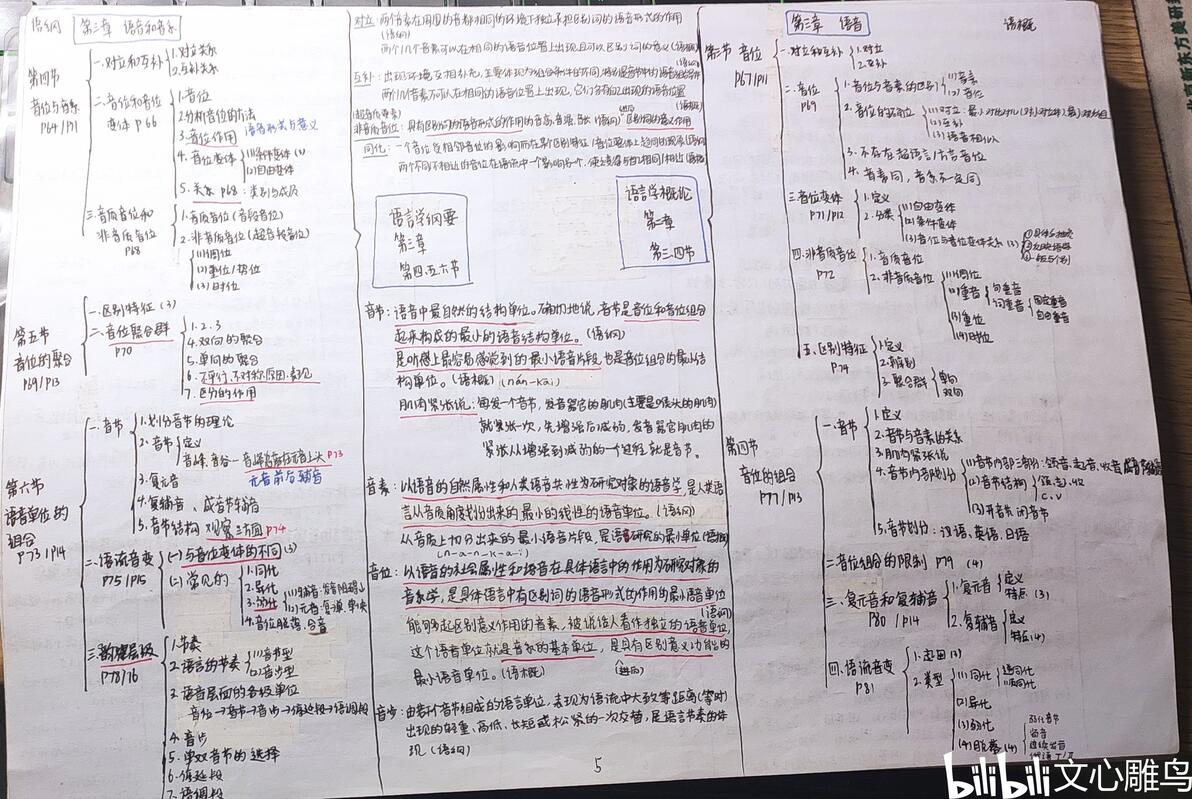 语纲 第三章 语音和音系
第四节
音位与音系
P64/P11
一.对立和互补
1.对立关系
2.互补关系
二.音位和音位
变体 P66
1.音位
2.分析音位的方法
3.音位作用 语音形式与意义
4.音位变体
(1)条件变体
(2)自由变体
5.关系 P68:类别与成员
三.音质音位和
非音质音位
P68
1.音质音位(音段音位)
2.非音质音位(超音段音位)
(1)调位
(2)重位/势位
(3)时位
第五节
音位的聚合
P69/P13
一.区别特征(3)
二.音位聚合群
P70
1.2.3
4.双向的聚合
5.单向的聚合
6.不平行,不对称原因,表现
7.区分的作用
第六节
语音单位的
组合
P73/P14
一.音节
1.划分音节的理论
2.音节
定义
P73
3.复元音 元音前后辅音
4.复辅音、成音节辅音
5.音节结构 观察 P74
二.语流音变
P75/P15
(一)与音位变体的不同(3)
(二)常见的
1.同化
2.异化
3.弱化
4.音位脱落,合音
三.韵律层级
P78/16
1.节奏
2.语言的节奏
(1)音节型
(2)音步型
3.语音层面的各级单位
音位→音节→音步→停延段→语调段
4.音步
5.单双音节的选择
6.停延段
7.语调段
对立:两个音素在周围的音都相同的环境下
(语纲)
互补:出现环境互相补充,
非音质音位:具有区别词的语音形式的作用的音高,音强,音长(语纲)区别词的意义作用
语言学纲要
第三章
第四.五六节
语言学概论
第三章
第三.四节
音节:语音中最自然的结构单位。确切地说,音节是音位和音位组合
起来构成的最小的语音结构单位。(语纲)
是听感上最容易感觉到的最小语音片段,也是音位组合的最小结
构单位。(语概)(nán-kāi)
肌肉紧张说:每发一个音节,发音器官的肌肉(主要是喉头的肌肉)
就紧张一次,先增强后减弱,发音器官肌肉的
紧张从增强到减弱的一个过程就是音节。
音素:以语音的自然属性和人类语音共性为研究对象的语音学,是人类语
言从音质角度划分出来的最小的线性的语音单位。(语纲)
从音质上切分出来的最小语音片段,是语音研究的最小单位(语概)
(n-a-n-k-a-i)
音位:以语音的社会属性和语音在具体语言中的作用为研究对象的
音系学,是具体语言中有区别词的语音形式的作用的最小语音单位
(语纲)
能够起区别意义作用的音素,被说话人看作独立的语音单位,
这个语音单位就是音系的基本单位,是具有区别意义功能的
最小语音单位。(语概)
音步:由若干音节组成的语音单位,表现为语流中大致等距离(等时)
出现的轻重、高低、长短或松紧的一次交替,是语言节奏的体
现(语纲)
5
第三章 语音 语概
第三节 音位
P67/P11
一.对立和互补
1.对立
2.互补
二.音位
P69
1.音位与音素的区别
(1)音素
(2)音位
2.音位的归纳
(2)互补
(3)语音相似
3.不存在超语言/方言音位
4.音素同,音系不一定同
三音位变体
P71/P12
1.定义
2.分类
(1)自由变体
(2)条件变体
(3)音位与音位变体关系(3)
四.非音质音位
P72
1.音质音位
2.非音质音位
(1)调位
(2)重音
句重音
词重音
固定重音
自由重音
(3)重位
(4)时位
五.区别特征
P74
1.定义
3.聚合群
单向
双向
第四节
音位的组合
P77/P13
一.音节
1.定义
2.音节与音素的关系
3.肌肉紧张说
4.音节内部划分
(1)音节内部三部分:领音,起音,收音
(2)音节结构
C.V
(3)开音节 闭音节
5.音节划分:汉语,英语,日语
二.音位组合的限制 P79 (4)
三.复元音和复辅音
P80/P14
1.复元音
定义
特点(3)
2.复辅音
定义
特点(4)
四.语流音变
P81
1.起因(3)
2.类型
(1)同化
(2)异化
(3)弱化
(4)脱落(4)
弱化音节
bilibili 文心雕鸟